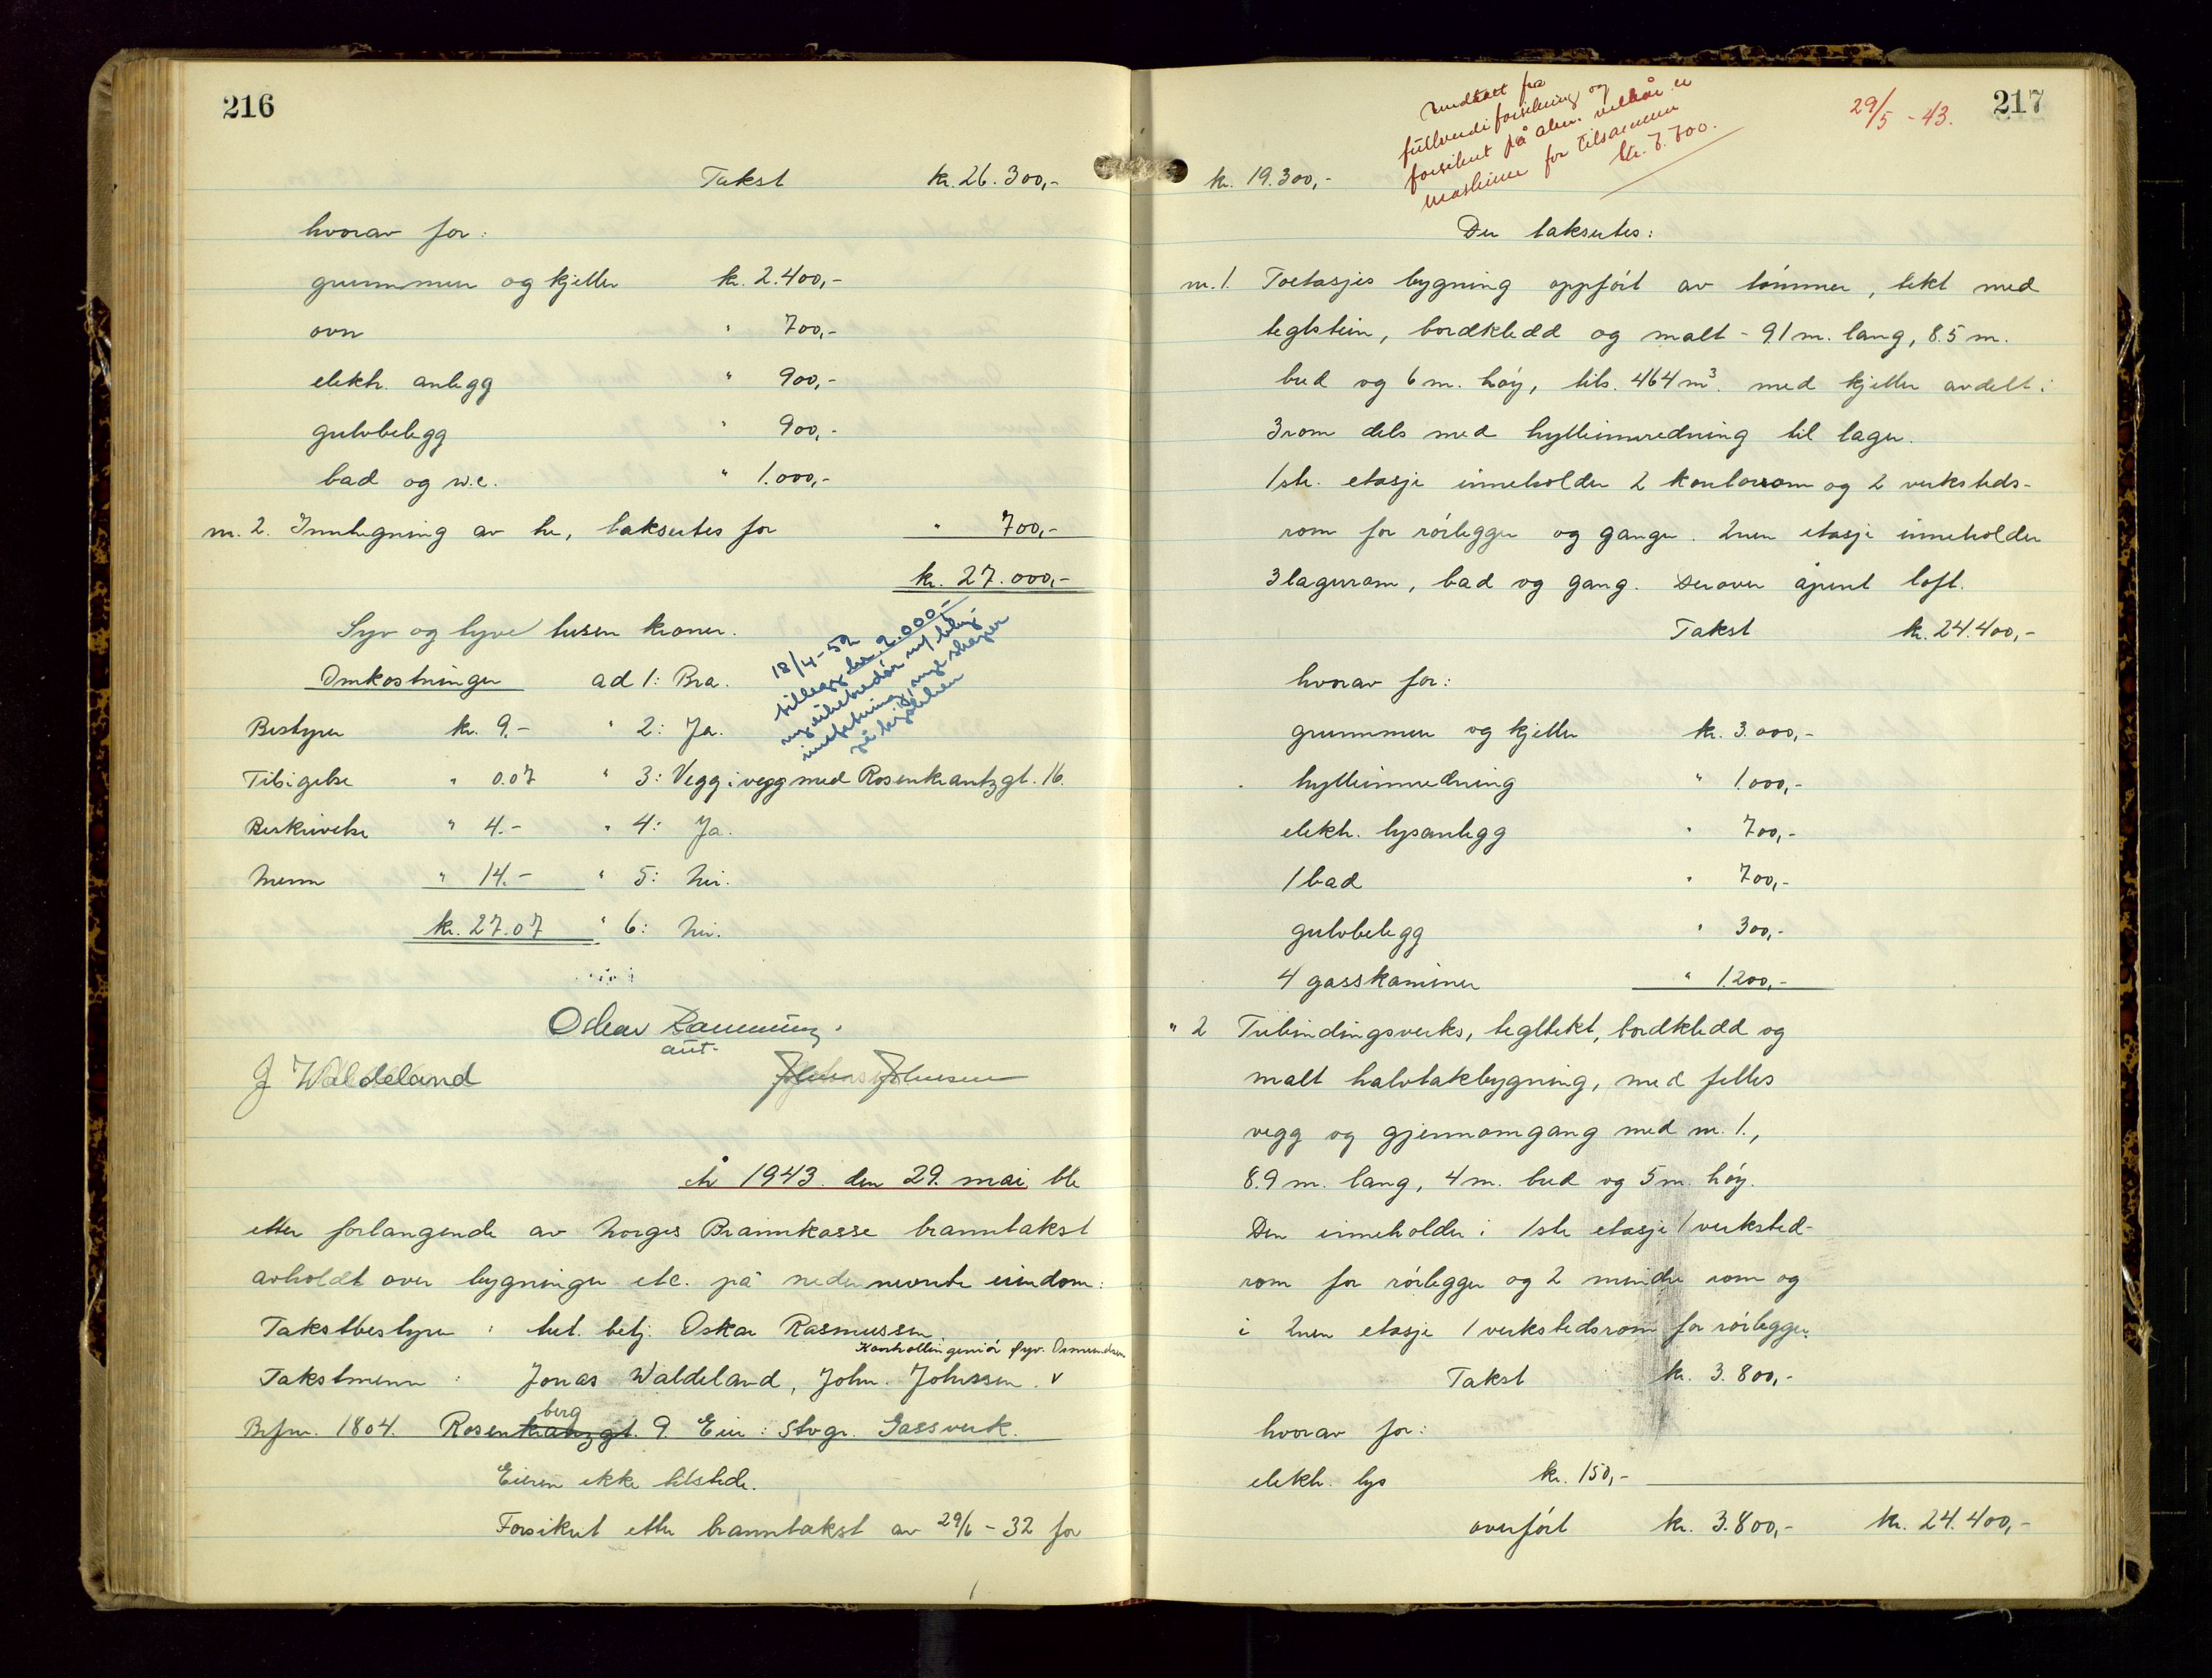 216
Takst kr. 26.300,-
hvorav for:
grunnmur og kjeller kr. 2.400,-
ovn " 700,-
elektr. anlegg " 900,-
gulvbelegg " 900,-
bad og w.c. " 1.000,-
nr. 2. Innhegning av tre, taksertes for " 700,-
kr. 27.000,-
Syv og tyve tusen kroner.
18/4-52
tillegg kr. 9.000,-
på kjøkken
Omkostninger ad 1: Bra.
Bestyrer kr. 9.- " 2: Ja.
Tilsigelse " 0.07 " 3: Vegg i vegg med Rosenkrantzgt. 16.
Beskrivelse " 4.- " 4: Ja.
Menn " 14.- " 5: Nei.
kr. 27.07 " 6: Nei.
Oskar Rasmussen
aut.
J Waldeland John Johnsen
År 1943 den 29. mai ble
etter forlangende av Norges Brannkasse branntakst
avholdt over bygninger etc. på nedennevnte eiendom:
Takstbestyrer : aut. betj. Oskar Rasmussen
Kontrollingeniør Syv. Osmundsen
Takstmenn : Jonas Waldeland, John Johnsen. v
berg
Brfnr. 1804. Rosenkrantzgt. 9. Eier: Stvgr. Gassverk.
Eieren ikke tilstede.
Forsikret etter branntakst av 29/6-32 for
217
29/5-43.
Undtatt fra
fullverdiforsikring og
forsikret på alm. vilkår er
maskiner for tilsammen
kr. 7.700.
kr. 19.300,-
Der taksertes:
nr. 1. Toetasjes bygning oppført av tømmer, tekt med
teglstein, bordkledd og malt - 9.1 m. lang, 8.5 m.
bred og 6 m. høy, tils. 464 m³. med kjeller avdelt i
3 rom dels med hylleinnredning til lager.
1ste. etasje inneholder 2 kontorrom og 2 verksteds-
rom for rørlegger og ganger. 2nen etasje inneholder
3 lagerrom, bad og gang. Derover åpent loft.
Takst kr. 24.400,-
hvorav for:
grunnmur og kjeller kr. 3.000,-
hylleinnredning " 1.000,-
elektr. lysanlegg " 700,-
1 bad " 700,-
gulvbelegg " 300,-
4 gasskaminer " 1.200,-
" 2 Trebindingsverks, tegltekt, bordkledd og
malt halvtakbygning, med felles
vegg og gjennomgang med nr. 1.,
8.9 m. lang, 4 m. bred og 5 m. høy.
Den inneholder i 1ste etasje 1 verksted-
rom for rørlegger og 2 mindre rom og
i 2nen etasje 1 verkstedsrom for rørlegger.
Takst kr. 3.800,-
hvorav for:
elektr. lys kr. 150,-
overført kr. 3.800,- kr. 24.400,-